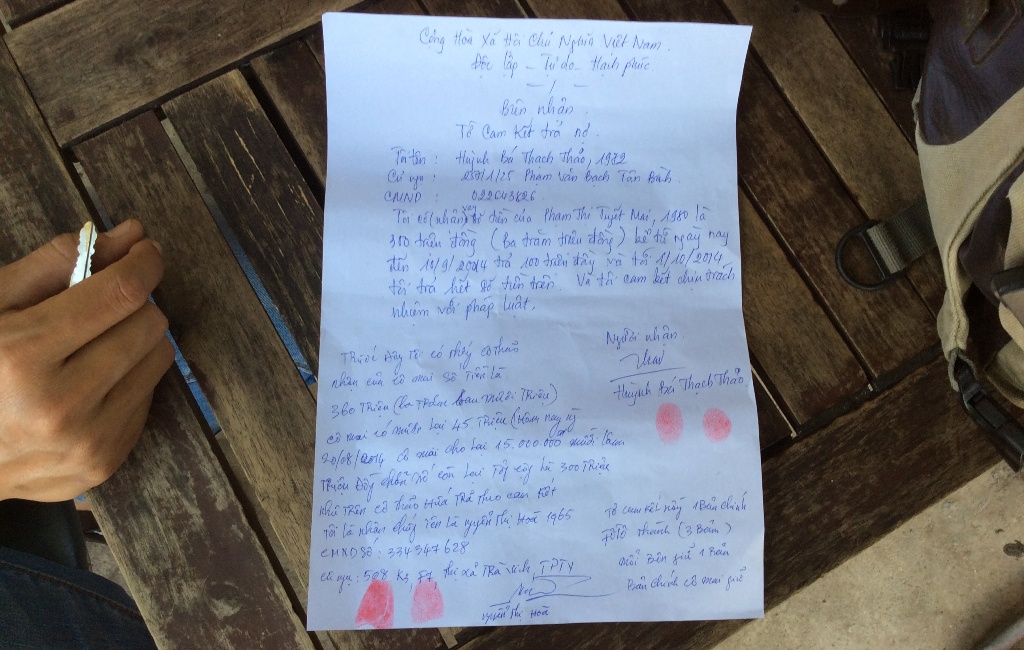 Cộng Hòa Xã Hội Chủ Nghĩa Việt Nam.
Độc lập - Tự do - Hạnh phúc.
Biên nhận
Tờ Cam kết trả nợ.
Tôi tên : Huỳnh Bá Thạch Thảo, 1972
Cư ngụ : 237/1/25 Phạm Văn Bạch Tân Bình.
CMND : 022643626
Tôi có (nhận) số tiền của Phạm Thị Tuyết Mai, 1980 là
300 triệu đồng (ba trăm triệu đồng) kể từ ngày nay
đến 11/9/2014 trả 100 triệu đồng và tới 1/10/2014
tôi trả hết số tiền trên. Và tôi cam kết chịu trách
nhiệm với pháp luật.
Người nhận.
Huỳnh Bá Thạch Thảo
Trước đây tôi có thấy cô thảo
nhận của cô mai số Tiền là
360 Triệu (ba Trăm sáu mươi Triệu)
cô mai có nhận lại 45 Triệu (Hôm nay
20/08/2014 cô mai cho lại 15.000.000 mười lăm
Triệu đồng còn lại 300 Triệu
như trên cô thảo Hứa Trả theo cam kết
Tôi là nhân chứng Tên là nguyễn Thị Hoà 1965
CMND Số : 334347628
cư ngụ : 508 K3, F7, thị xã Trà vinh, TPTV
nguyễn Thị Hoà
Tờ cam kết này 1 Bản chính
FôTô thành (3 Bản)
mỗi Bên giữ 1 Bản
Bản chính cô mai giữ